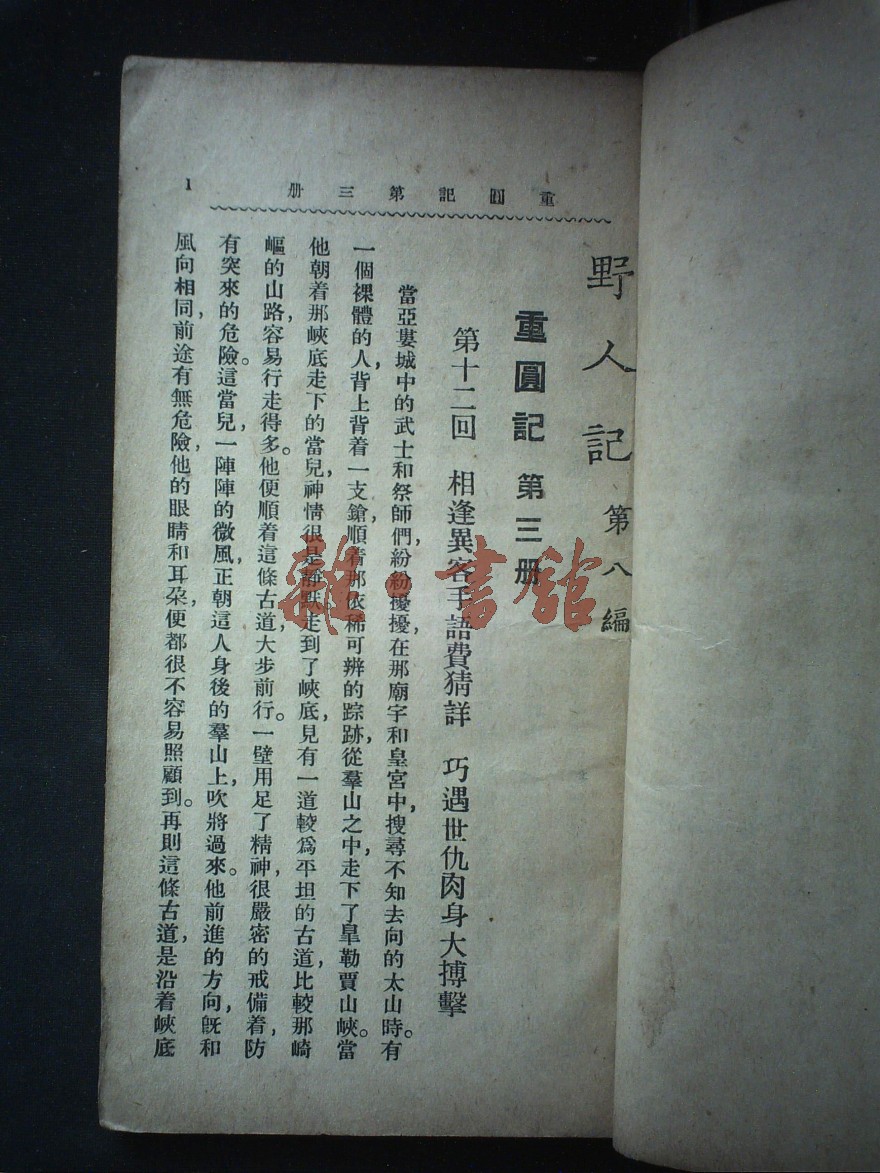 重圓記第三册
1
野人記 第八編
重圓記 第三册
第十二回 相逢異客手語費猜詳 巧遇世仇肉身大搏擊
當亞婁城中的武士和祭師們，紛紛擾擾，在那廟宇和皇宮中，搜尋不知去向的太山時。有
一個裸體的人，背上背着一支鎗，順着那依稀可辨的踪跡，從羣山之中，走下了皐勒賈山峽。當
他朝着那峽底走下的當兒，神情很是靜默，走到了峽底，見有一道較爲平坦的古道，比較那崎
嶇的山路，容易行走得多。他便順着這條古道，大步前行。一壁用足了精神，很嚴密的戒備着，防
有突來的危險。這當兒，一陣陣的微風，正朝這人身後的羣山上，吹將過來。他前進的方向，旣和
風向相同，前途有無危險，他的眼睛和耳朶，便都很不容易照顧到。再則這條古道，是沿着峽底
雜·書館